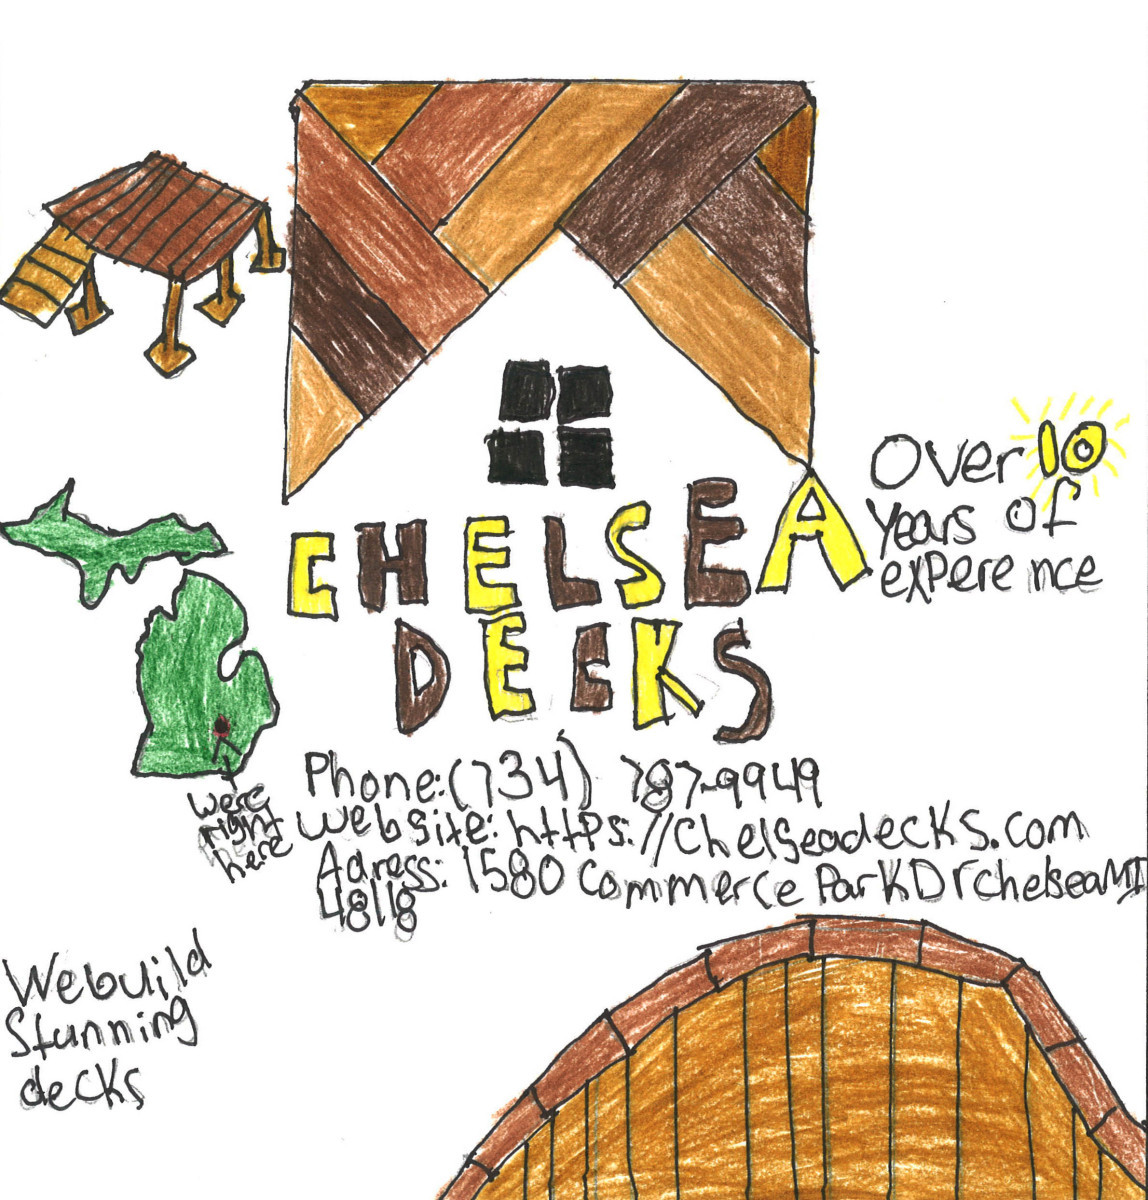 Over 10
years of
experence
CHELSEA
DECKS
Phone: (734) 787-9949
website: https://chelseadecks.com
Adress: 1580 Commerce Park Dr chelsea MI
48118
were
right
here
We build
Stunning
decks